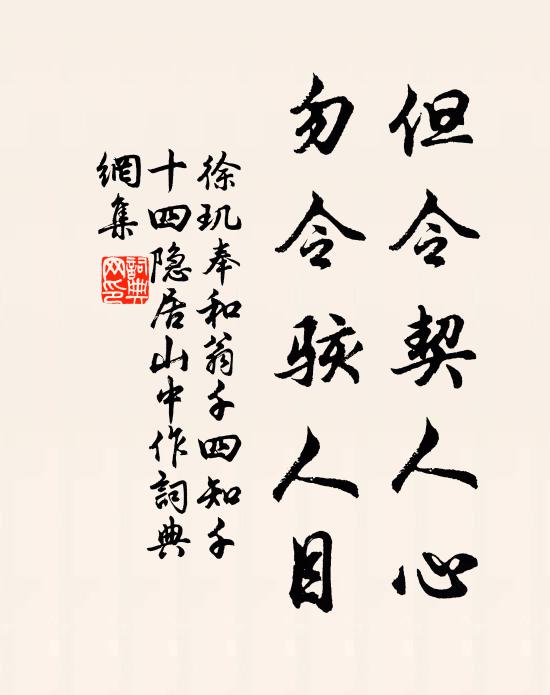 但令契人心
勿令骇人目
徐玑奉和翁千四知千
十四隐居山中作詞典
網集
詞典
网印